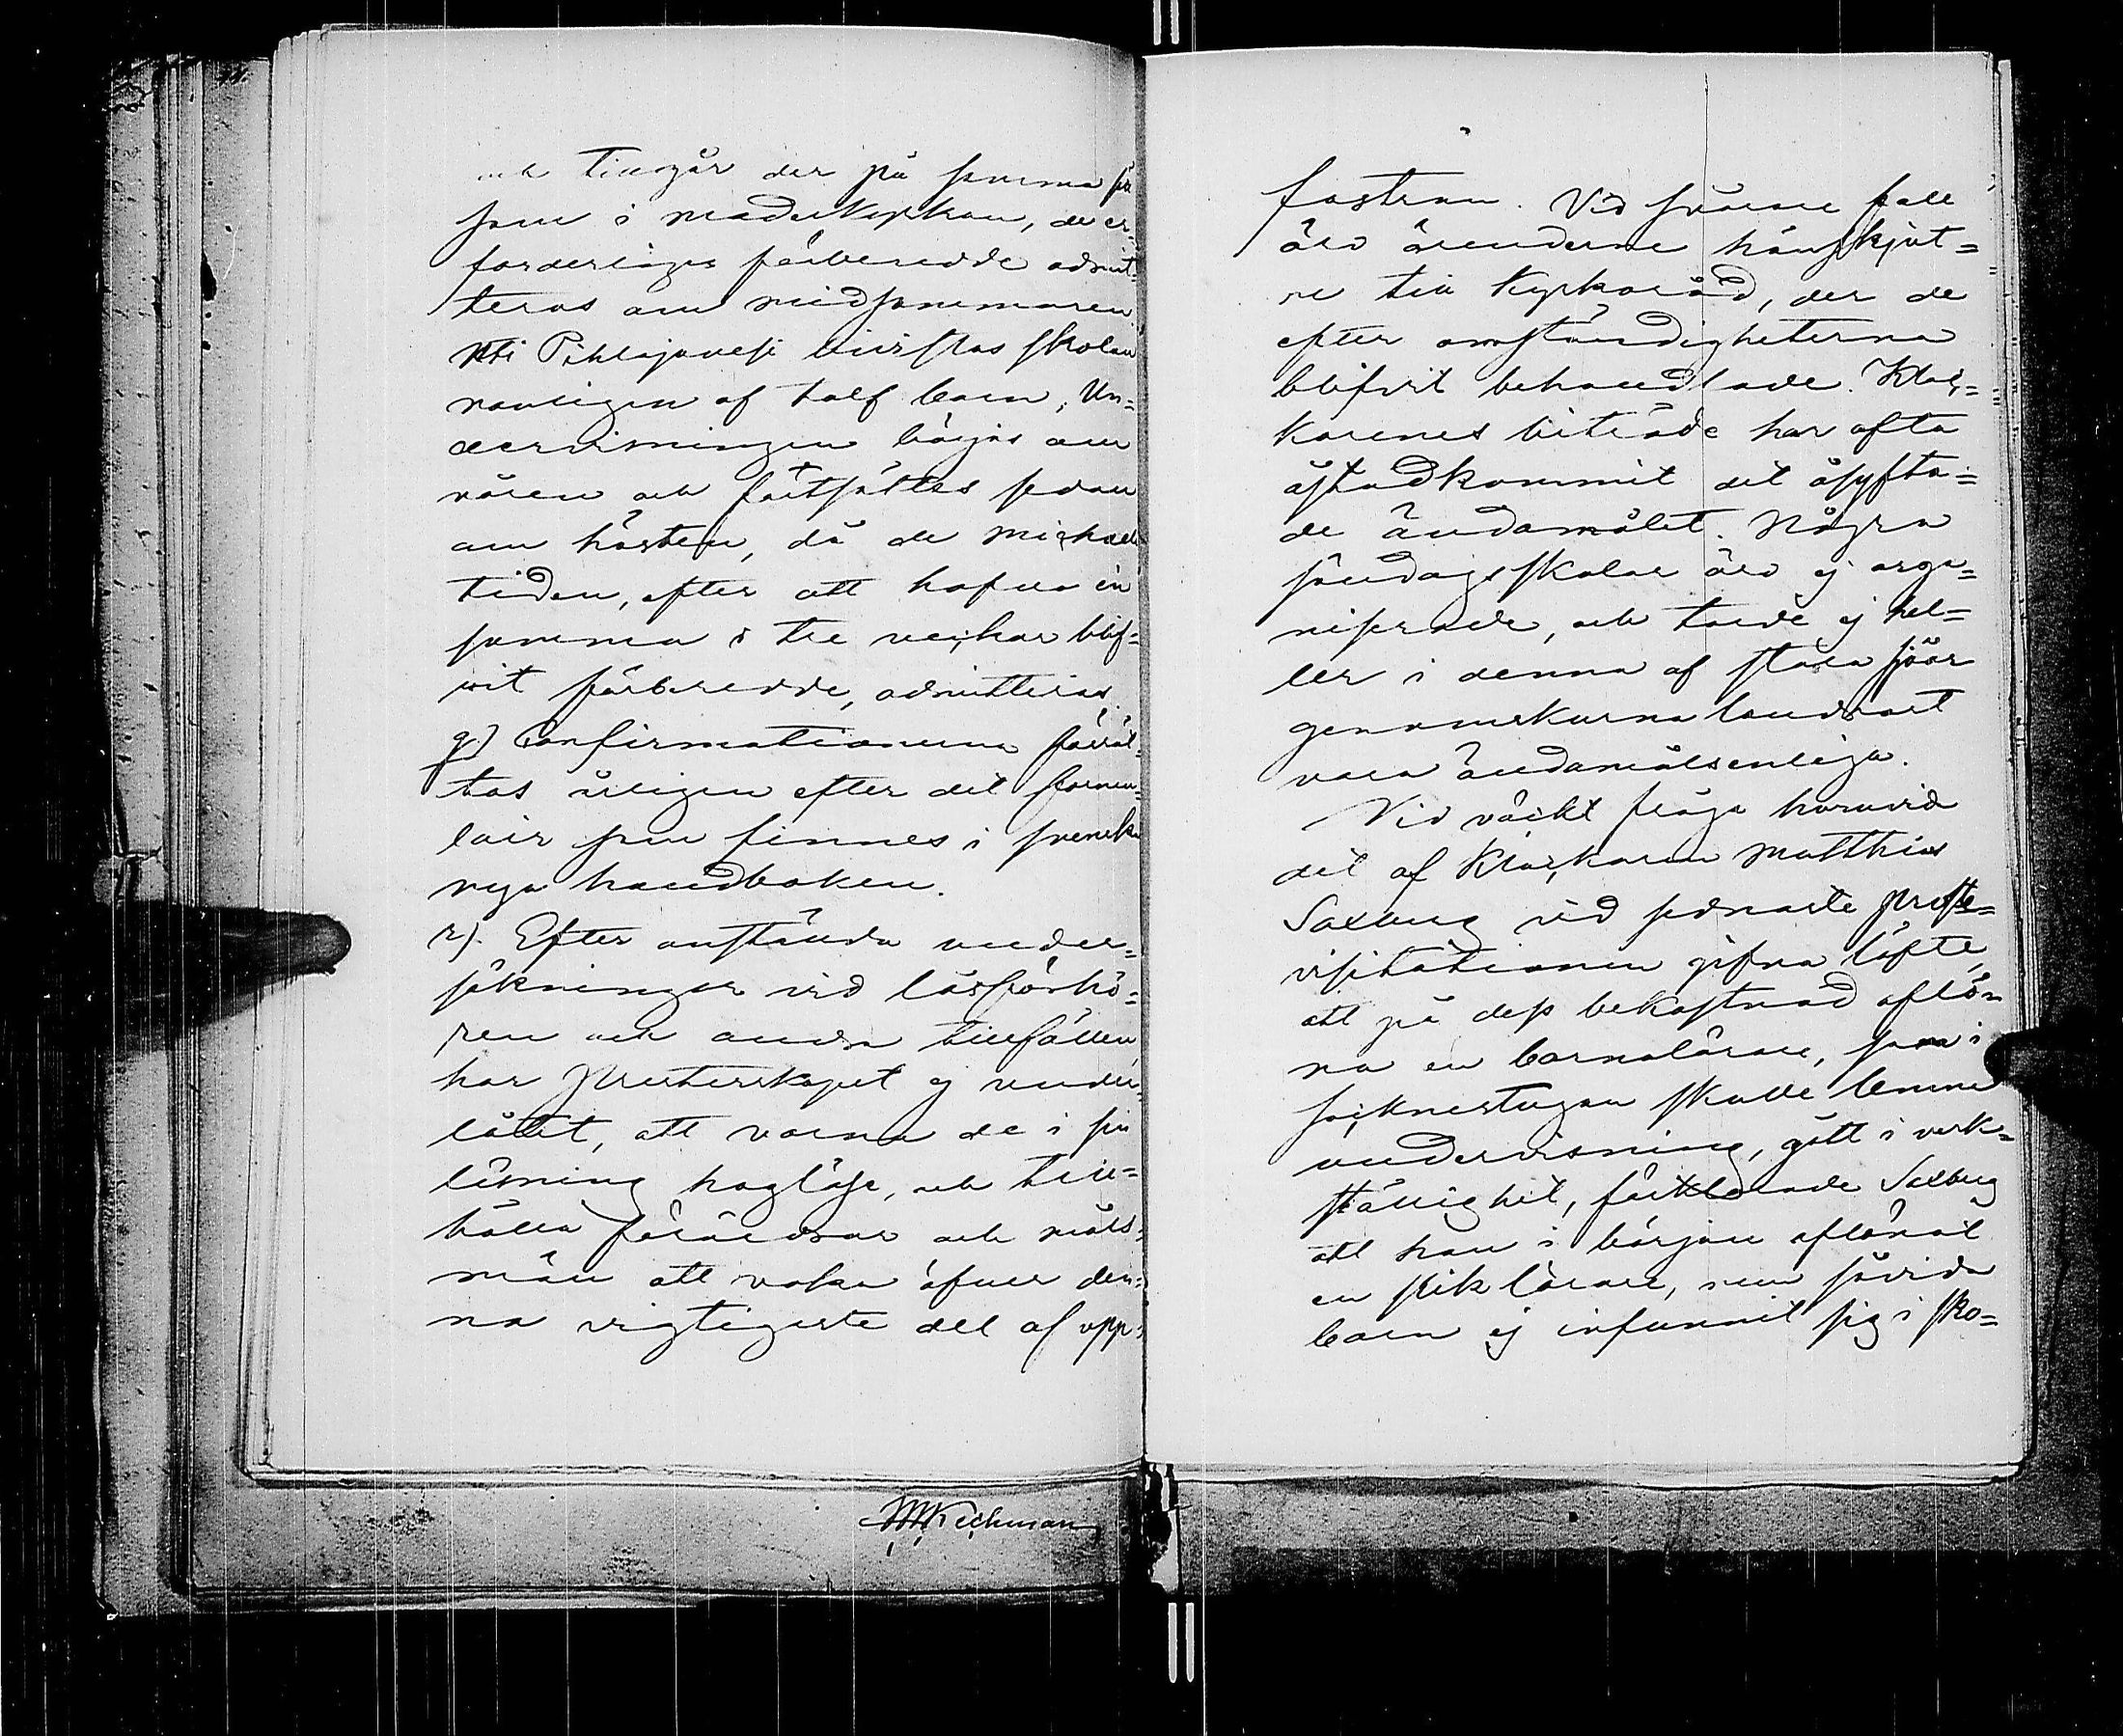 och tillgår der på samma sätt
som i moderkyrkan, de er-
forderligen förberedde admit-
teras om midsommaren.
Uti Pihlajavesi bivistas skolan
vanligen af tolf barn; Un-
dervisningen börjas om
våren och fortsättes sedan
om hösten, då de Michaeli
tiden, efter att hafva én
somma i tre veckor blif-
vit förberedde, admitteras.
q.) Confirmationerna förrät-
tas årligen efter det formu-
lair som finnes i svenska
nya handboken.
r). Efter anstånda under-
sökningar vid läsförhö-
ren och andra tillfällen,
har Presterskapet ej under-
låtit, att varna de i sin
läsning vaglöse, och till-
hålla föräldrar och måls-
män att vaka öfver den-
na vigtigaste del af upp-
MWKeckman
fostran. Vid svårare fall
äro ärenderne hänskjut-
ne till Kyrkoråd, der de
efter omständigheterna
blifvit behandlade. Kloc-
karenes biträde har ofta
åstadkommit det åsyfta-
de ändamålet. Några
söndagsskolar äro ej orga-
niserade, och torde ej hel-
ler i denna af stora sjöar
genomskurna landsort
vara ändamålsenliga.
Vid väckt fråga huruvida
det af Klockaren Matthias
Saxberg vid sednaste Prosts-
visitationen gifna löfte,
att på dess bekostnad aflön-
na en barnalärare, som i
socknestugan skulle lemna
undervisning, gått i verk-
ställighet, förklarade Saxberg
att han i början aflönat
en slik lärare, men såvida
barn ej infunnit sig i sko-